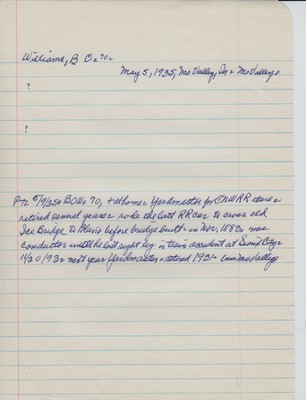 Williams, B. O. 70.
May 5, 1935, Mo Valley, In Mo Valley.
?
?
PTL 5/9/35. BOW. 70, at home. Yardmaster for CNWRR there.
retired several years. rode the last RR car to cross old
Ice Bridge to Blair before bridge built in Nov. 1883. was
conductor until he lost right leg in train accident at Sioux City.
next year Yardmaster. retired 1931. Mo Valley